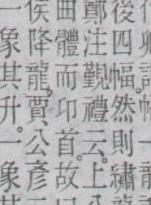 一龍
後四幅然則繡
鄭注覲禮云上
曲體而卬首故
侯降龍賈公彥
象其升一象其